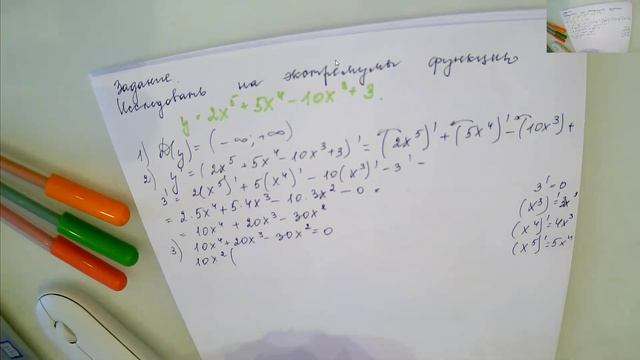 Задание.
Исследовать на экстремумы функцию
y = 2x⁵ + 5x⁴ - 10x³ + 3.
1) D(y) = (-∞; +∞)
2) y' = (2x⁵ + 5x⁴ - 10x³ + 3)' = (2x⁵)' + (5x⁴)' - (10x³) +
3' = 2(x⁵)' + 5(x⁴)' - 10(x³)' - 3' -
= 2·5x⁴ + 5·4x³ - 10·3x² - 0 =
= 10x⁴ + 20x³ - 30x²
3) 10x⁴ + 20x³ - 30x² = 0
10x² (
3' = 0
(x³)' =
(x⁴)' = 4x³
(x⁵)' = 5x⁴